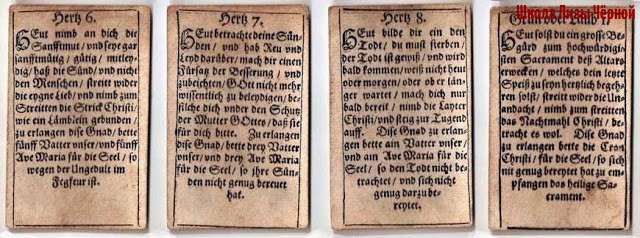 Hertz 6.
HEut nimb an dich die
Sanfftmut / und seye gar
sanfftmütig / gütig / mitley-
dig / haß die Sünd / und nicht
den Menschen / streitt wider
die eygne Lieb / und nimb zum
Streitten die Strick Christi /
wie ein Lämblein gebunden /
zu erlangen dise Gnad / bette
fünff Vatter unser / und fünff
Ave Maria für die Seel / so
wegen der Ungedult im
Fegfeur ist.
Hertz 7.
HEut betrachte deine Sün-
den / und hab Reu und
Leyd darüber / mach dir einen
Fürsatz der Besserung / und
zubeichten / GOtt nicht mehr
wissentlich zu belaydigen / be-
filche dich under den Schutz
der Mutter GOttes / daß sie
für dich bitte. Zu erlangen
dise Gnad / bette drey Vatter
unser / und drey Ave Maria
für die Seel / so ihre Sün-
den nicht genug bereuet
hat.
Hertz 8.
HEut bilde dir ein den
Todt / du must sterben /
der Todt ist gewiß / und wird
bald kommen / weist nicht heut
oder morgen / oder ob er län-
ger wartet / mach dich nur
bald bereit / nimb die Layter
Christi / und steig zur Tugend
auff. Dise Gnad zu erlan-
gen bette ain Vatter unser /
und ain Ave Maria für die
Seel / so den Todt nicht be-
trachtet / und sich nicht
genug darzu be-
reytet.
Школа Лизы Чёрной
HEut solst du ein grosse Be-
gürd zum hochwürdig-
sten Sacrament deß Altars
erwecken / welches dein letzte
Speiß zu seyn hertzlich begeh-
ren solst / streitt wider die Un-
andacht / nimb zum streitten
das Nachtmahl Christi / be-
tracht es wol. Dise Gnad
zu erlangen bette die Cron
Christi / für die Seel / so sich
nit genug bereytet hat zu em-
pfangen das heilige Sa-
crament.